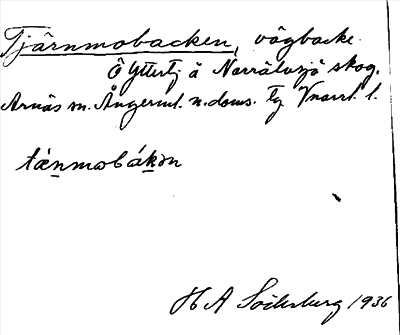 Tjärnmobacken, vägbacke.
Ö YtterTj å Norrälvsjö skog.
Arnäs sn. Ångerml. n. doms. Vnorrl. l.
tænmobákən
H A Söderberg 1936